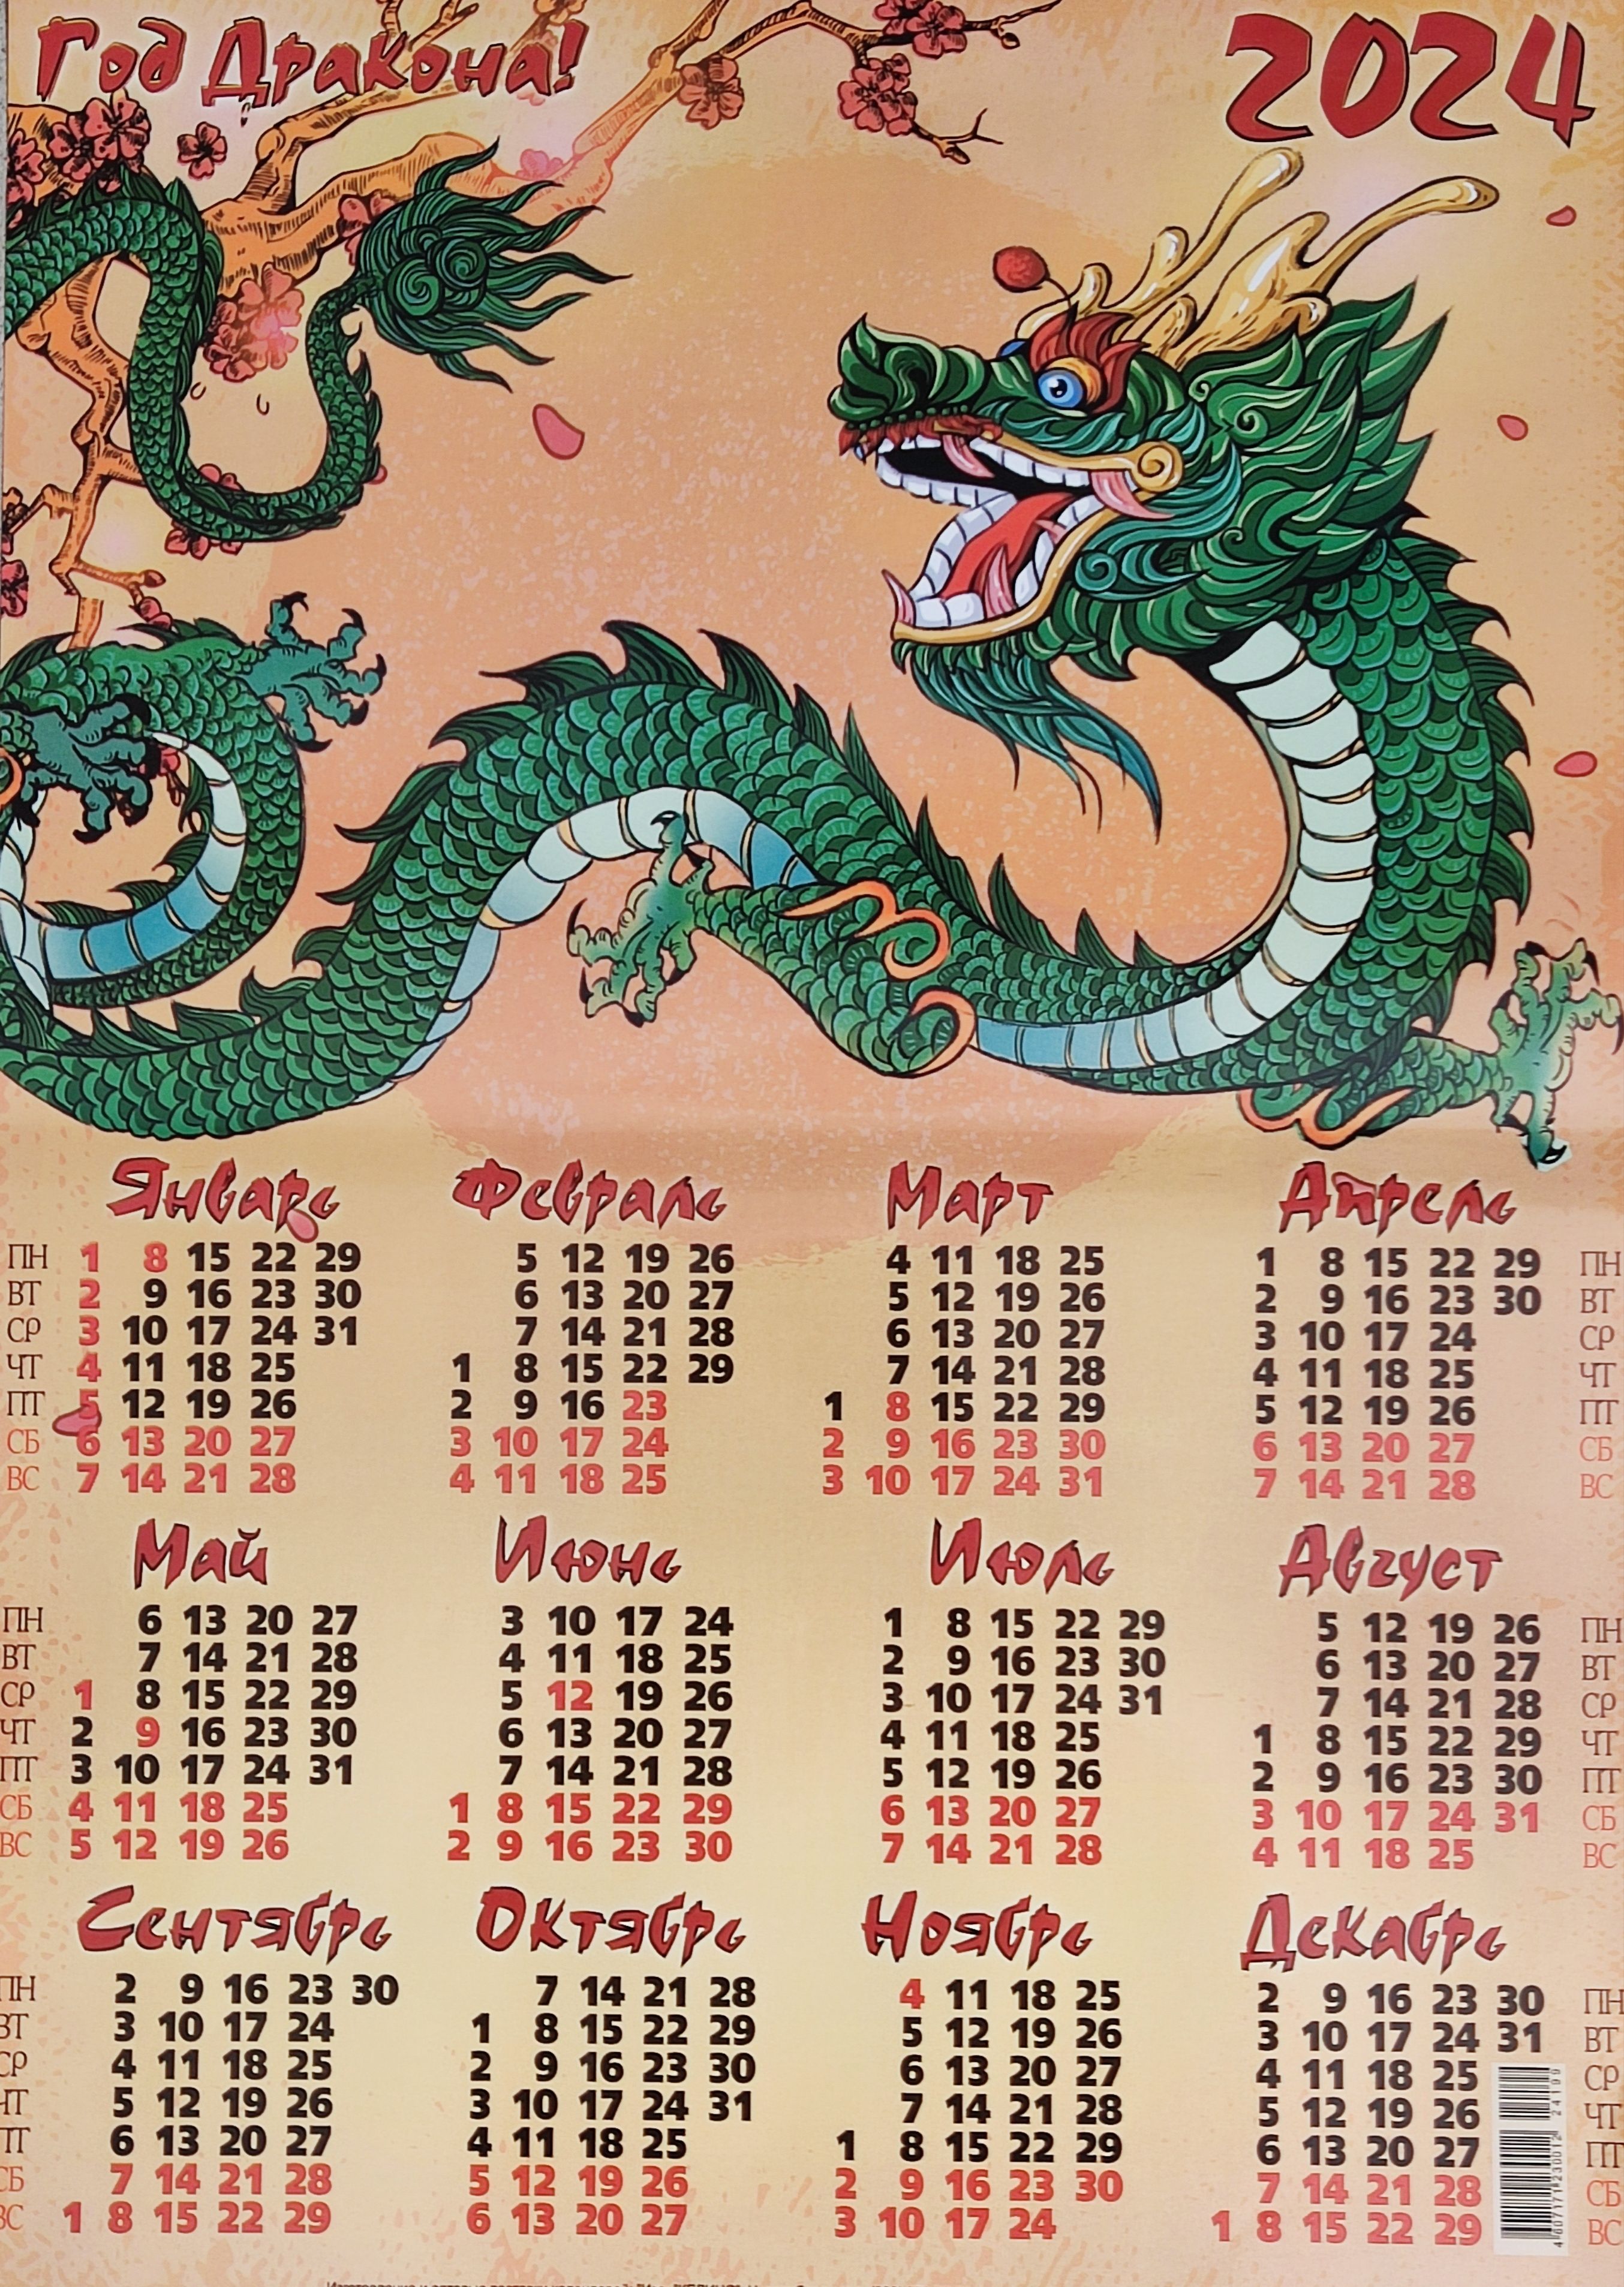 Год Дракона!
2024
Январь Февраль Март Апрель
ПН 1 8 15 22 29 5 12 19 26 4 11 18 25 1 8 15 22 29 ПН
ВТ 2 9 16 23 30 6 13 20 27 5 12 19 26 2 9 16 23 30 ВТ
СР 3 10 17 24 31 7 14 21 28 6 13 20 27 3 10 17 24 СР
ЧТ 4 11 18 25 1 8 15 22 29 7 14 21 28 4 11 18 25 ЧТ
ПТ 5 12 19 26 2 9 16 23 1 8 15 22 29 5 12 19 26 ПТ
СБ 6 13 20 27 3 10 17 24 2 9 16 23 30 6 13 20 27 СБ
ВС 7 14 21 28 4 11 18 25 3 10 17 24 31 7 14 21 28 ВС
Май Июнь Июль Август
ПН 6 13 20 27 3 10 17 24 1 8 15 22 29 5 12 19 26 ПН
ВТ 7 14 21 28 4 11 18 25 2 9 16 23 30 6 13 20 27 ВТ
СР 1 8 15 22 29 5 12 19 26 3 10 17 24 31 7 14 21 28 СР
ЧТ 2 9 16 23 30 6 13 20 27 4 11 18 25 1 8 15 22 29 ЧТ
ПТ 3 10 17 24 31 7 14 21 28 5 12 19 26 2 9 16 23 30 ПТ
СБ 4 11 18 25 1 8 15 22 29 6 13 20 27 3 10 17 24 31 СБ
ВС 5 12 19 26 2 9 16 23 30 7 14 21 28 4 11 18 25 ВС
Сентябрь Октябрь Ноябрь Декабрь
ПН 2 9 16 23 30 7 14 21 28 4 11 18 25 2 9 16 23 30 ПН
ВТ 3 10 17 24 1 8 15 22 29 5 12 19 26 3 10 17 24 31 ВТ
СР 4 11 18 25 2 9 16 23 30 6 13 20 27 4 11 18 25 СР
ЧТ 5 12 19 26 3 10 17 24 31 7 14 21 28 5 12 19 26 ЧТ
ПТ 6 13 20 27 4 11 18 25 1 8 15 22 29 6 13 20 27 ПТ
СБ 7 14 21 28 5 12 19 26 2 9 16 23 30 7 14 21 28 СБ
ВС 1 8 15 22 29 6 13 20 27 3 10 17 24 1 8 15 22 29 ВС
4 607171 230012 24199